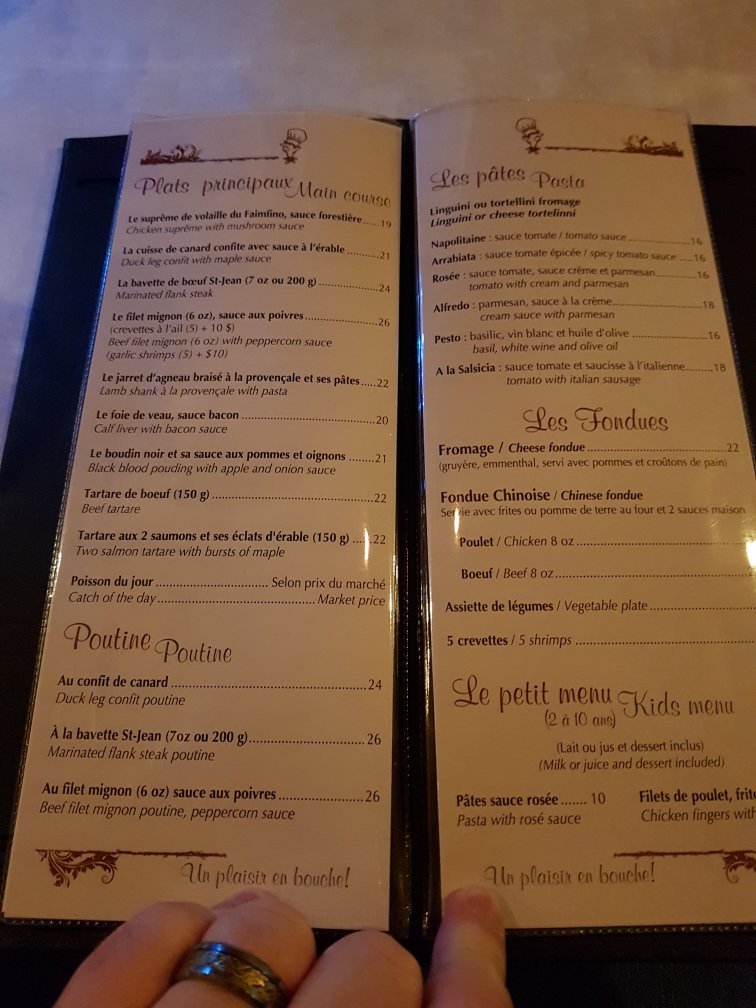 Plats principaux Main course
Le suprême de volaille du Faimfino, sauce forestière......19
Chicken suprême with mushroom sauce
La cuisse de canard confite avec sauce à l'érable ..........21
Duck leg confit with maple sauce
La bavette de bœuf St-Jean (7 oz ou 200 g) ...............24
Marinated flank steak
Le filet mignon (6 oz), sauce aux poivres ..................26
(crevettes à l'ail (5) + 10 $)
Beef filet mignon (6 oz) with peppercorn sauce
(garlic shrimps (5) + $10)
Le jarret d'agneau braisé à la provençale et ses pâtes.....22
Lamb shank à la provençale with pasta
Le foie de veau, sauce bacon ...................................20
Calf liver with bacon sauce
Le boudin noir et sa sauce aux pommes et oignons ........21
Black blood pouding with apple and onion sauce
Tartare de boeuf (150 g) .........................................22
Beef tartare
Tartare aux 2 saumons et ses éclats d'érable (150 g) .....22
Two salmon tartare with bursts of maple
Poisson du jour ............................ Selon prix du marché
Catch of the day....................................... Market price
Poutine Poutine
Au confit de canard ................................................24
Duck leg confit poutine
À la bavette St-Jean (7oz ou 200 g)..............................26
Marinated flank steak poutine
Au filet mignon (6 oz) sauce aux poivres ......................26
Beef filet mignon poutine, peppercorn sauce
Un plaisir en bouche!
Les pâtes Pasta
Linguini ou tortellini fromage
Linguini or cheese tortelinni
Napolitaine : sauce tomate / tomato sauce....................16
Arrabiata : sauce tomate épicée / spicy tomato sauce .....16
Rosée : sauce tomate, sauce crème et parmesan............16
tomato with cream and parmesan
Alfredo : parmesan, sauce à la crème..........................18
cream sauce with parmesan
Pesto : basilic, vin blanc et huile d'olive ......................16
basil, white wine and olive oil
A la Salsicia : sauce tomate et saucisse à l'italienne........18
tomato with italian sausage
Les Fondues
Fromage / Cheese fondue ......................................22
(gruyère, emmenthal, servi avec pommes et croûtons de pain)
Fondue Chinoise / Chinese fondue
Servie avec frites ou pomme de terre au four et 2 sauces maison
Poulet / Chicken 8 oz ............................................
Boeuf / Beef 8 oz..................................................
Assiette de légumes / Vegetable plate .........................
5 crevettes / 5 shrimps ..........................................
Le petit menu Kids menu
(2 à 10 ans)
(Lait ou jus et dessert inclus)
(Milk or juice and dessert included)
Pâtes sauce rosée ....... 10
Pasta with rosé sauce
Filets de poulet, frite
Chicken fingers with
Un plaisir en bouche!